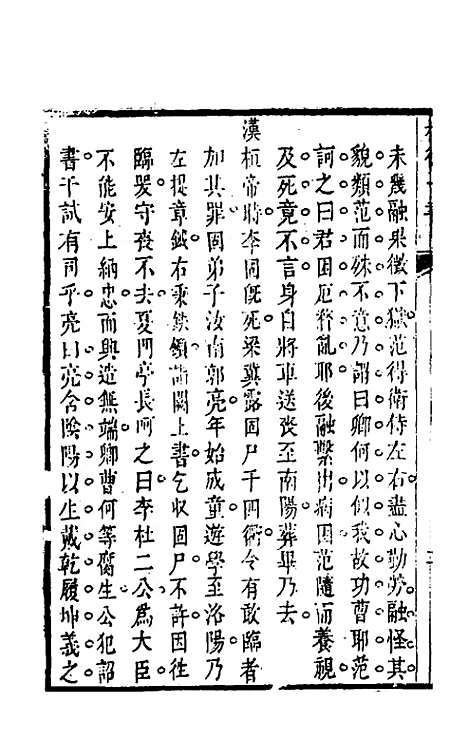 未幾融果徵下獄范得衛侍左右盡心勤勞融怪其
貌類范而殊不意乃謂曰卿何以似我故功曹耶范
訶之曰君困厄瞀亂耶後融繫出病困范隨而養視
及死竟不言身自將車送喪至南陽葬畢乃去
漢桓帝時李固旣死梁冀露固尸于四衢令有敢臨者
加其罪固弟子汝南郭亮年始成童遊學至洛陽乃
左提章鉞右秉鈇鑕詣闕上書乞收固尸不許因往
臨哭守喪不去夏門亭長呵之曰李杜二公爲大臣
不能安上納忠而興造無端卿曹何等腐生公犯詔
書干試有司乎亮曰亮含陰陽以生戴乾履坤義之